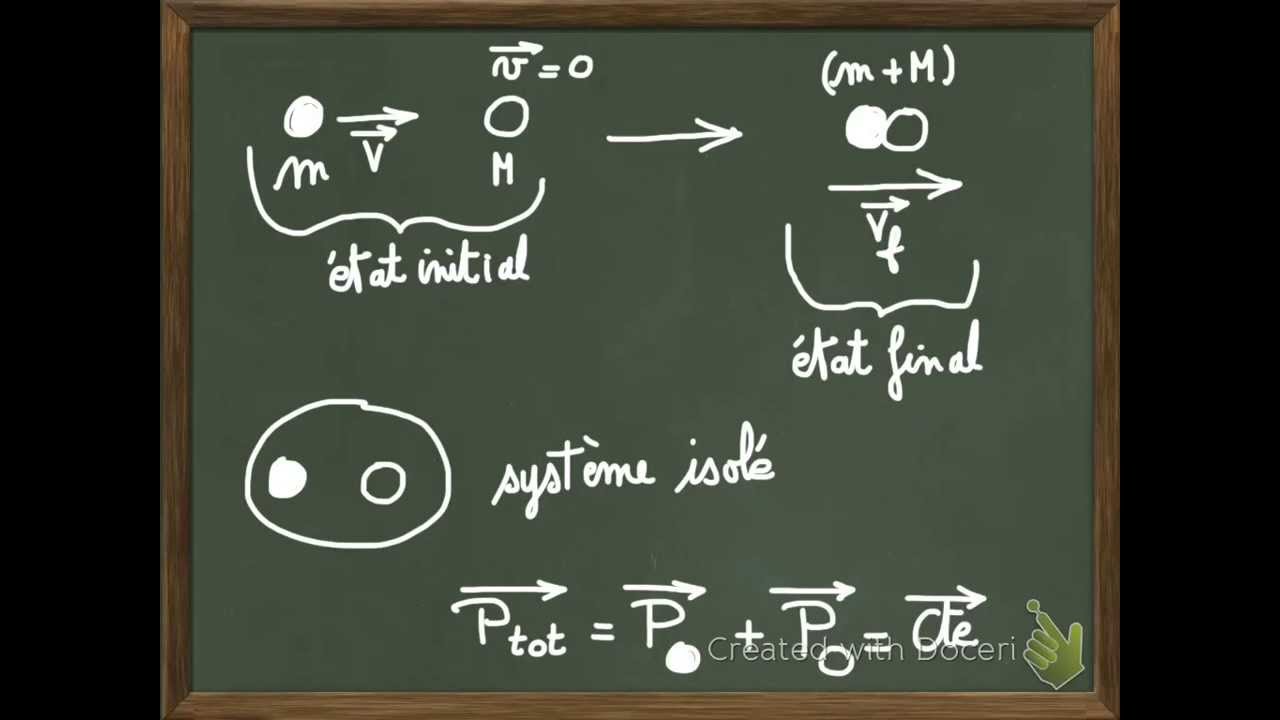 v = 0
(m + M)
m V M
V f
état initial
état final
système isolé
P tot = P + P = cte
Created with Doceri